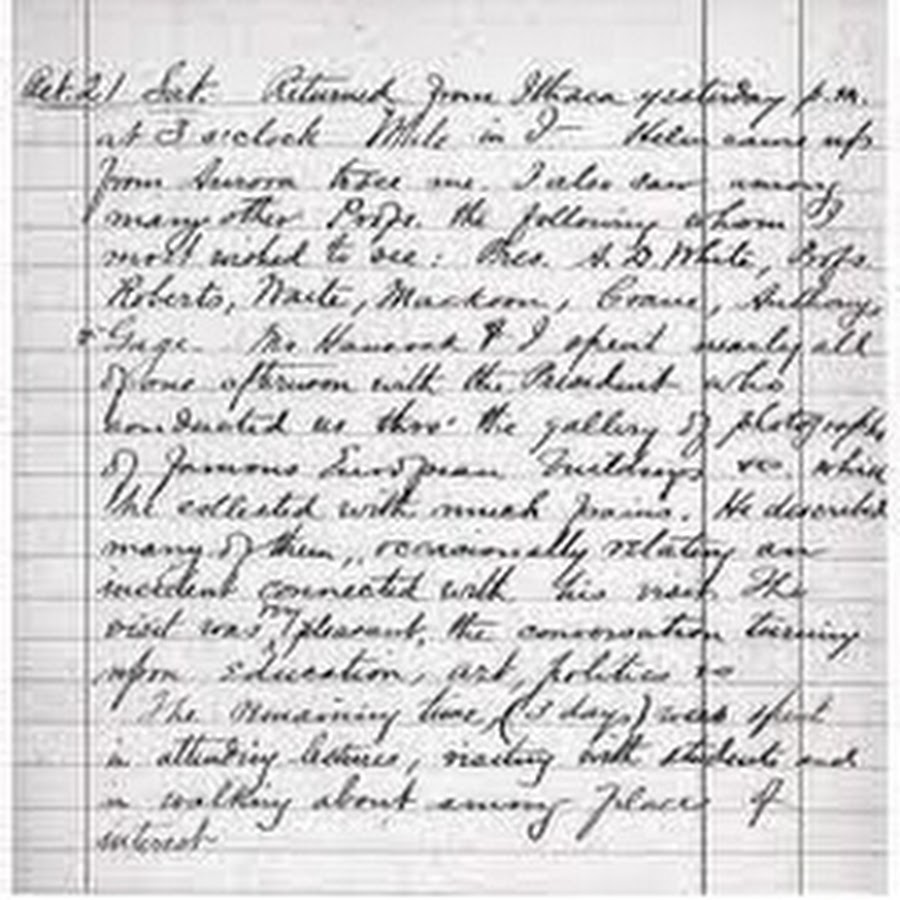 Oct. 21 Sat. Returned from Ithaca yesterday p.m.
at 3 o'clock While in I— Helen came up
from Aurora to see me. I also saw among
many other Profs. the following whom I
most wished to see: Pres. A. D. White, Profs.
Roberts, Waite, Crane, Anthony
& Gage. Mr. Hancock & I spent nearly all
of one afternoon with the President who
conducted us thro' the gallery of photographs
of famous European buildings &c. which
he collected with much pains. He described
many of them, occasionally relating an
incident connected with his visit. The
visit was very pleasant, the conversation turning
upon education, art, politics &c
The remaining time, (3 days) was spent
in attending lectures, visiting with students and
in walking about among places of
interest